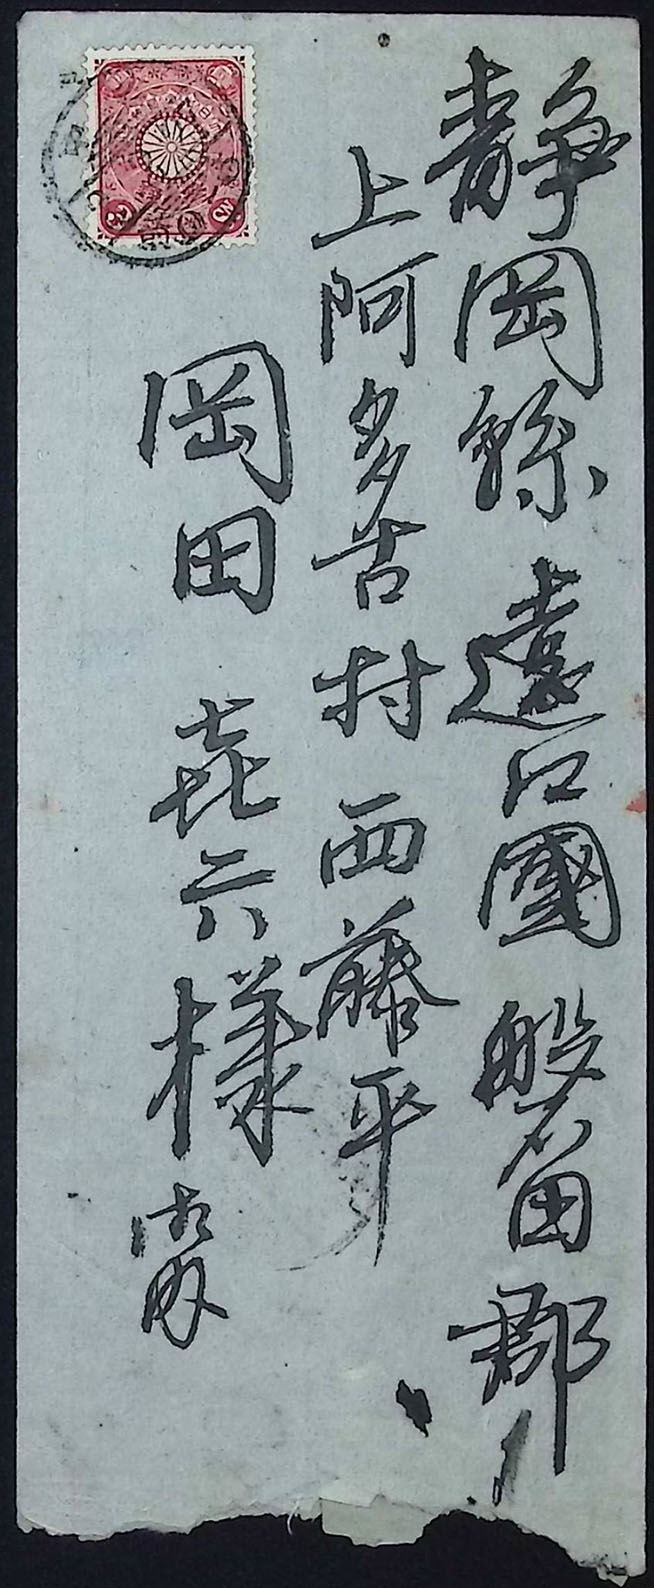 靜岡縣遠江國磐田郡
上阿多古村西藤平
岡田㐂六様